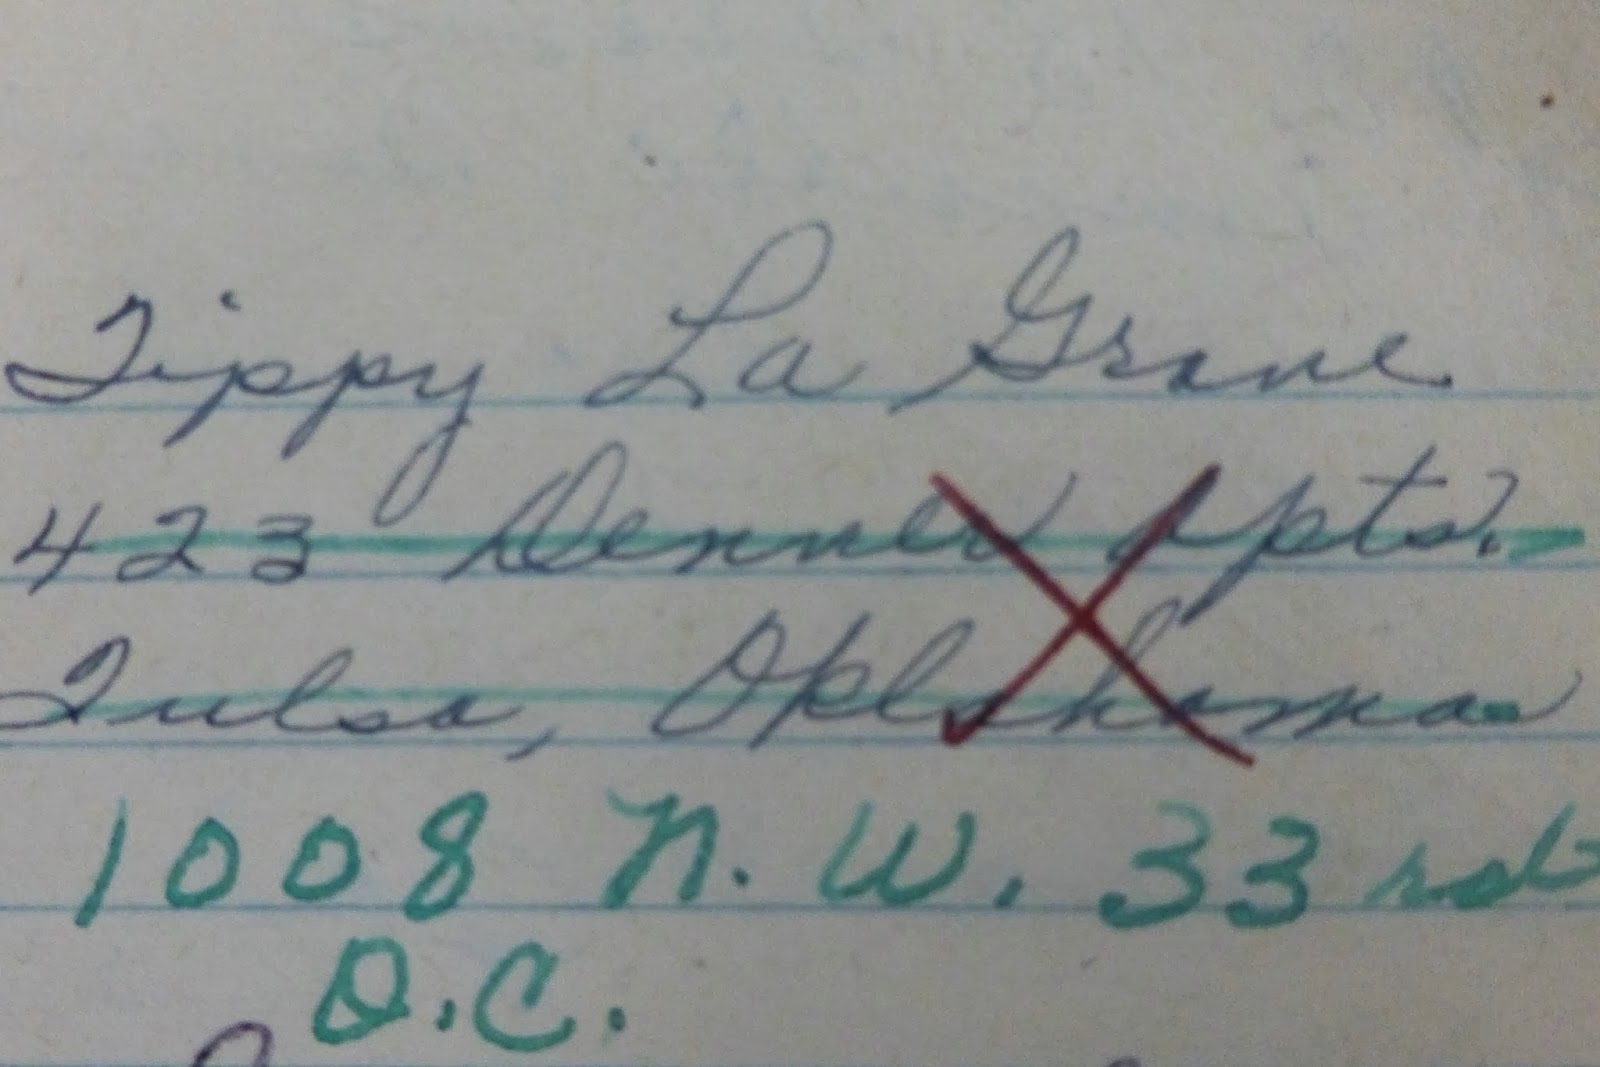 Tippy La Grone
423 Denver Apts.
Tulsa, Oklahoma
1008 N.W. 33rd
O.C.